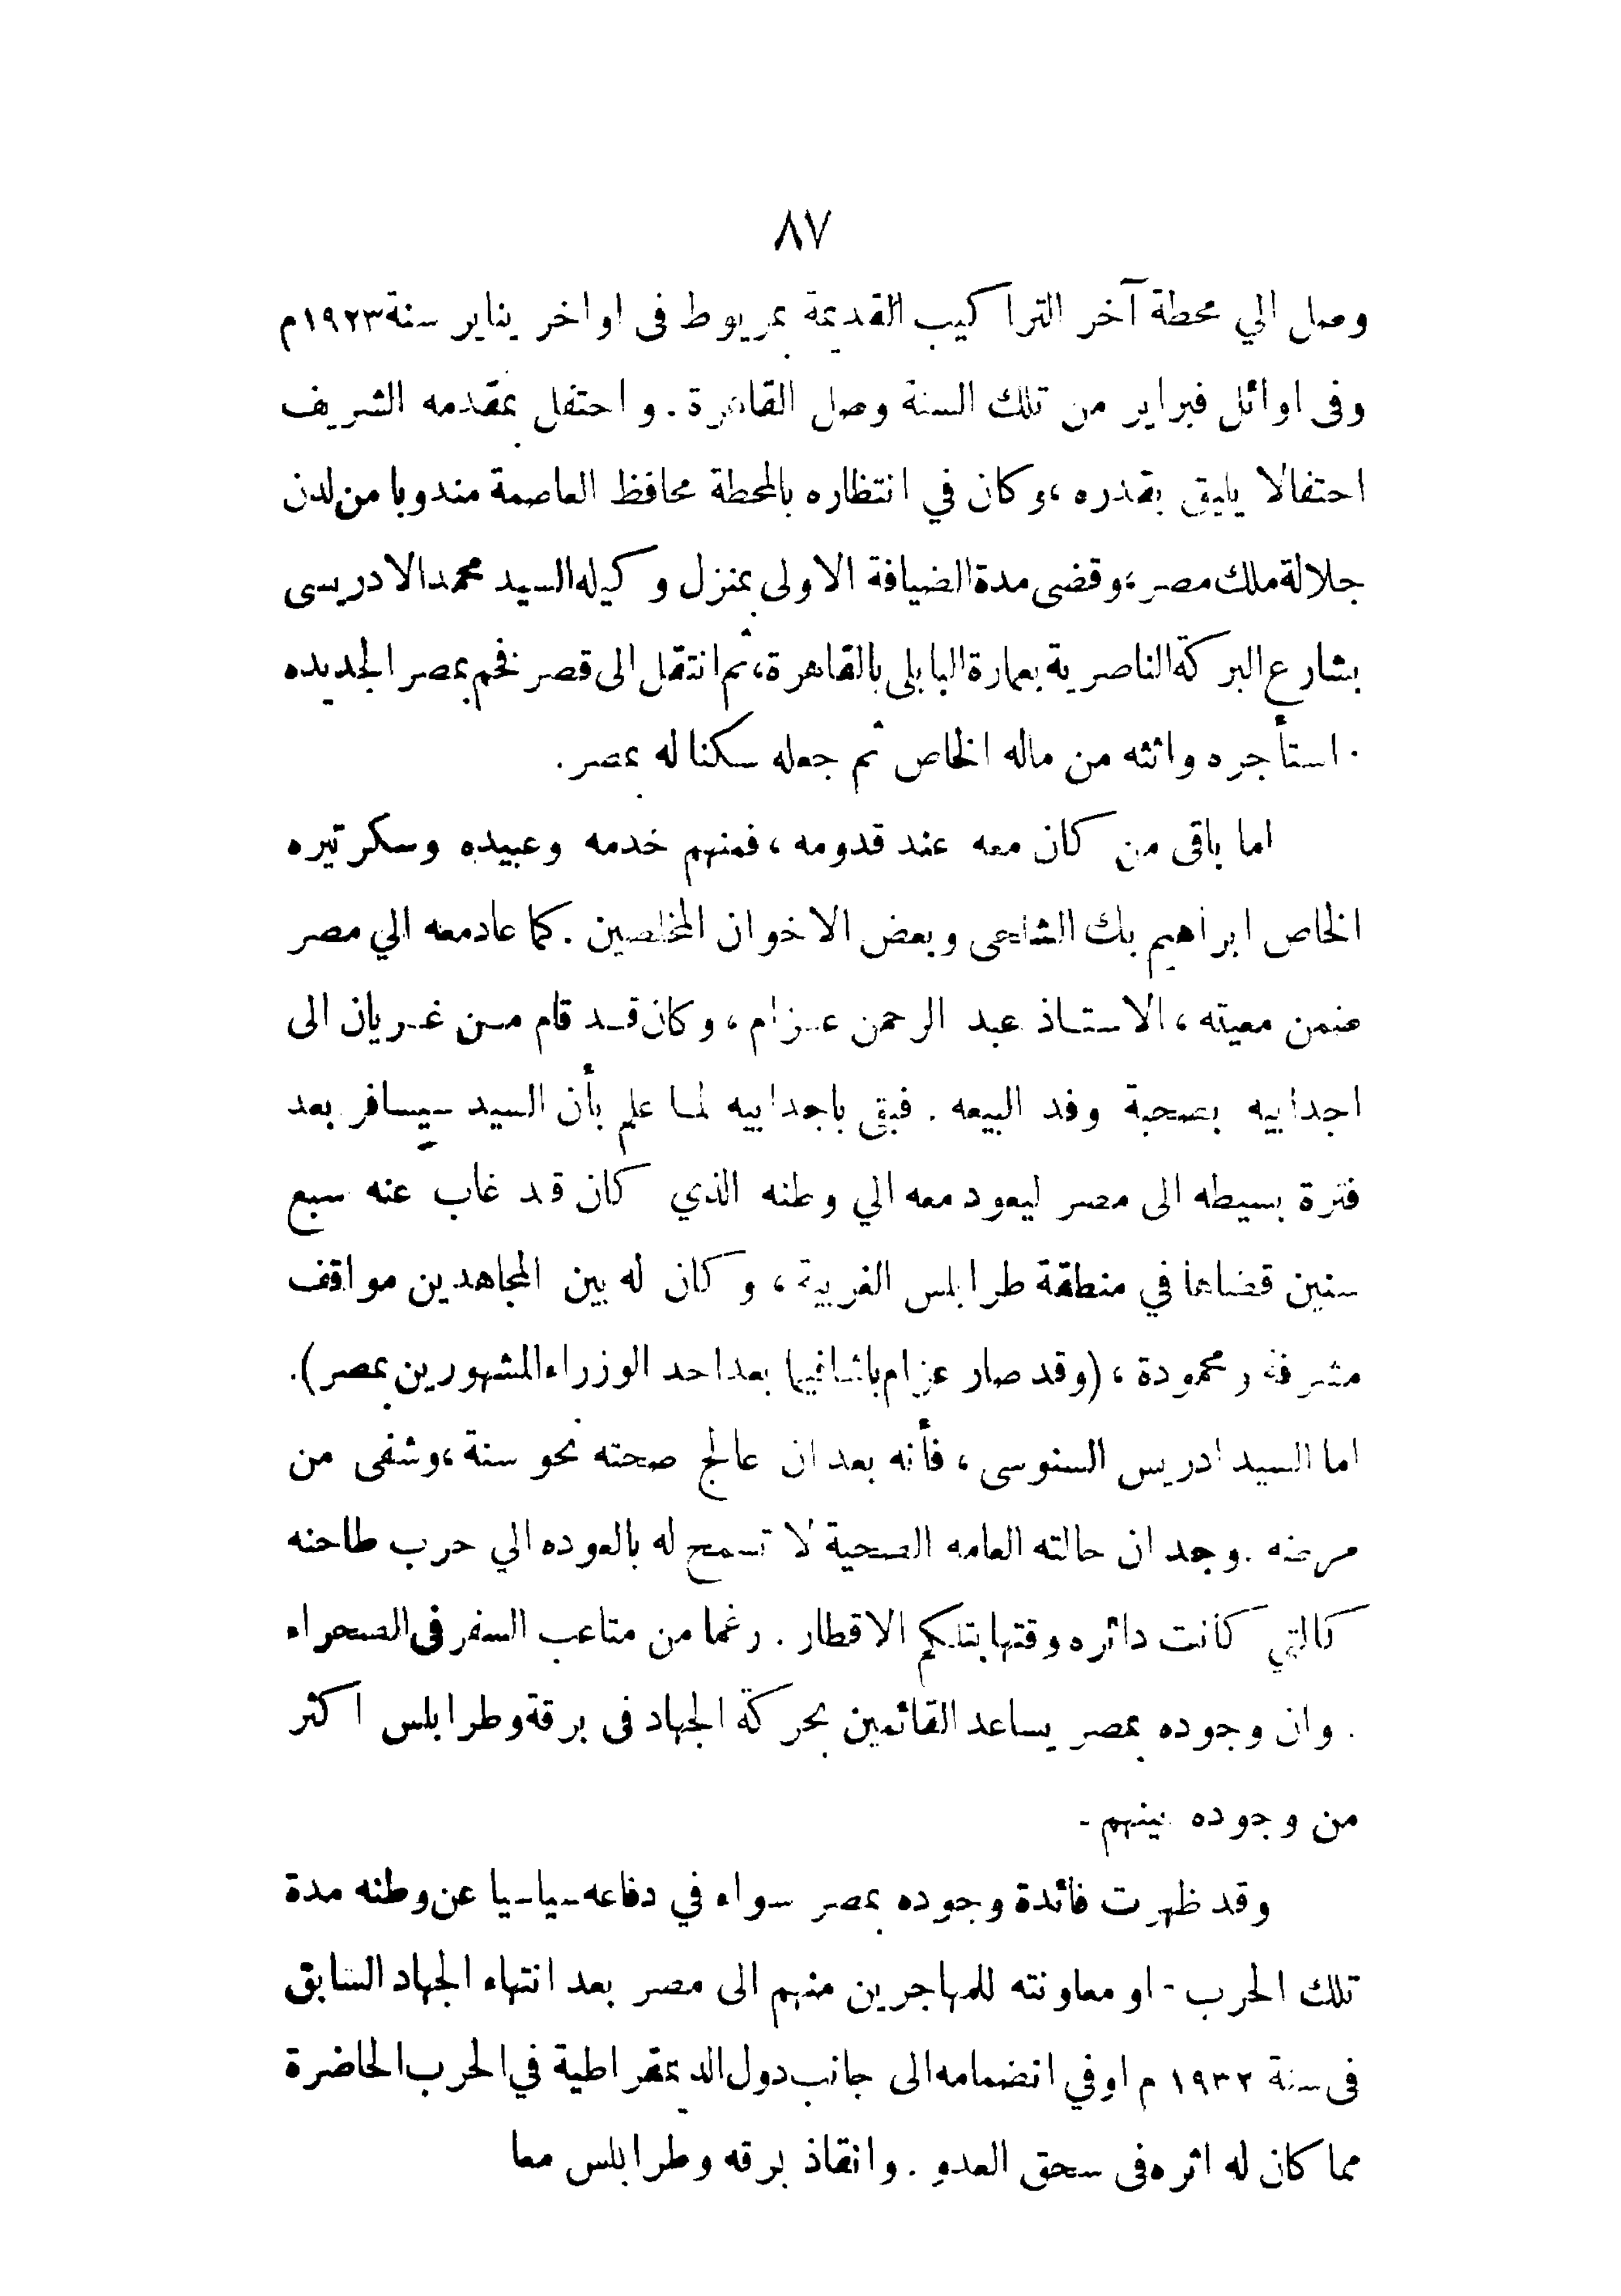 ٨٧
وصل الي محطة آخر التراكيب القديمة بمريوط فى اواخر يناير سنة ١٩٢٣م
وفى اوائل فبراير من تلك السنة وصل القاهرة . و احتفل بمقدمه الشريف
احتفالا يليق بقدره ، وكان في انتظاره بالمحطة محافظ العاصمة مندوبا من لدن
جلالة ملك مصر ، وقضى مدة الضيافة الاولى بمنزل وكيله السيد محمد الادريسى
بشارع البركة الناصرية بعمارة البابلى بالقاهرة ، ثم انتقل الى قصر فخم بمصر الجديده
. استأجره واثثه من ماله الخاص ثم جعله سكنا له بمصر .
اما باقى من كان معه عند قدومه ، فمنهم خدمه وعبيده وسكرتيره
الخاص ابراهيم بك الشلحى وبعض الاخوان المخلصين . كما عاد معه الي مصر
ضمن معيته ، الاستاذ عبد الرحمن عزام ، وكان قد قام من غريان الى
اجدابيه بصحبة وفد البيعه . فبقى باجدابيه لما علم بأن السيد سيسافر بعد
فترة بسيطه الى مصر ليعود معه الي وطنه الذي كان قد غاب عنه سبع
سنين قضاها في منطقة طرابلس الغربية ، و كان له بين المجاهدين مواقف
مشرفة ومحمودة ، (وقد صار عزام باشا فيما بعد احد الوزراء المشهورين بمصر) .
اما السيد ادريس السنوسى ، فأنه بعد ان عالج صحته نحو سنة ، وشفى من
مرضه . وجد ان حالته العامه الصحية لا تسمح له بالعوده الي حرب طاحنه
كالتي كانت دائره وقتها بتلكم الاقطار . رغما من متاعب السفر فى الصحراء
. وان وجوده بمصر يساعد القائمين بحركة الجهاد فى برقة وطرابلس اكثر
من وجوده بينهم -
وقد ظهرت فائدة وجوده بمصر سواء في دفاعه سياسيا عن وطنه مدة
تلك الحرب - او معاونته للمهاجرين منهم الى مصر بعد انتهاء الجهاد السابق
فى سنة ١٩٣٢ م اوفي انضمامه الى جانب دول الديمقراطية في الحرب الحاضرة
مما كان له اثره فى سحق العدو . وانقاذ برقه وطرابلس معا